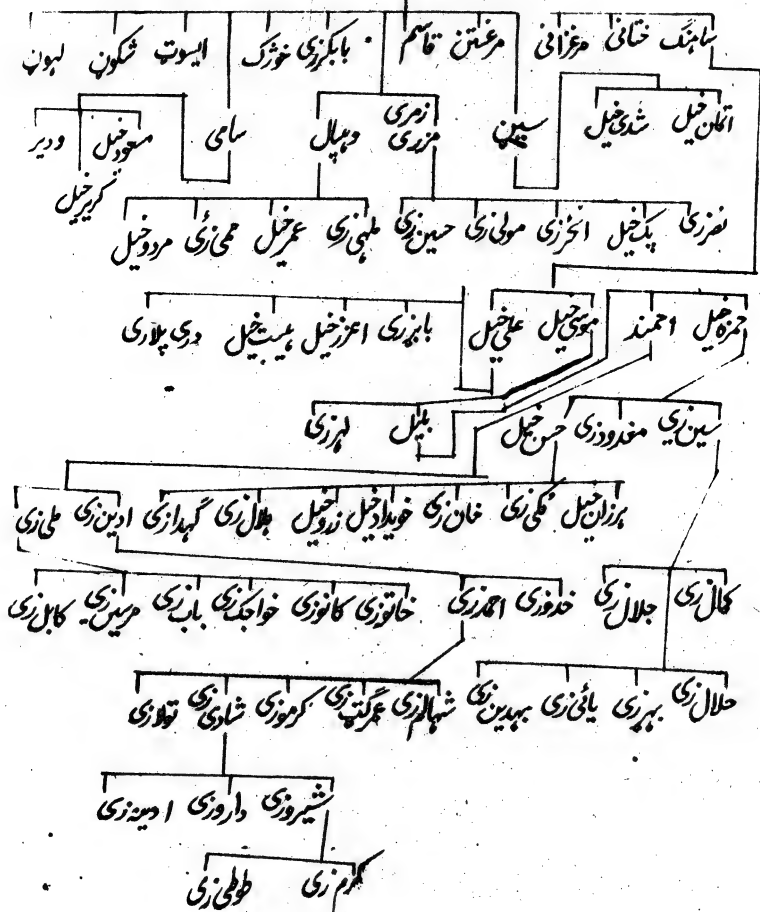 ساہنگ ختانی مرغزانی مرغستن قاسم بابکرزی خوژک ایسوت شکون لہون
اتمان خیل شدی خیل سین زمری مزری وہپال سامی مسعود خیل ودیر
کریر خیل
نصرزی پک خیل انخرزی مولی زی حسین زی ملہی زی عمر خیل ممی زئی مردو خیل
حمزہ خیل احمند موسیٰ خیل علی خیل بابرزی اعزز خیل ہیبت خیل دری پلاری
سین زی مغدودزی حسن خیل بلیل لہرزی
ہرزان خیل نمکی زی خان زی خویداد خیل زرو خیل بلال زی گہدازی ادین زی ملی زی
کمال زی جلال زی خدوزی احمدزی خاتوزی کانوزی خواجک زی باب زی مرسین زی کابل زی
حلال زی بہرزی یائی زی بہدین زی شہالم زی عمر گتپ زی کرموزی شادی زی تولازی
شیروزی داروزی ادینہ زی
کرم زی طوطی زی